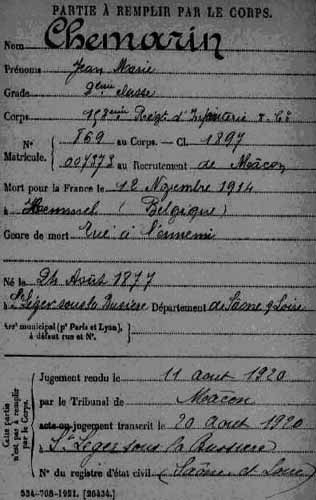 PARTIE À REMPLIR PAR LE CORPS.
Nom Chemarin
Prénoms Jean Marie
Grade 2ème classe
Corps 158ème Régt d'Infanterie
N° 869 au Corps. — Cl. 1897
Matricule. 007373 au Recrutement de Mâcon
Mort pour la France le 12 Novembre 1914
à (Belgique)
Genre de mort tué à l'ennemi
Né le 24 Août 1877
à St Léger sous la Bussière Département de Saône & Loire
Arrt municipal (pr Paris et Lyon),
à défaut rue et N°.
Cette partie
n'est pas à remplir
par le Corps.
Jugement rendu le 11 aout 1920
par le Tribunal de Macon
acte ou jugement transcrit le 20 aout 1920
à St Léger sous la Bussière
N° du registre d'état civil (Saône et Loire)
534-708-1921. [26434.]